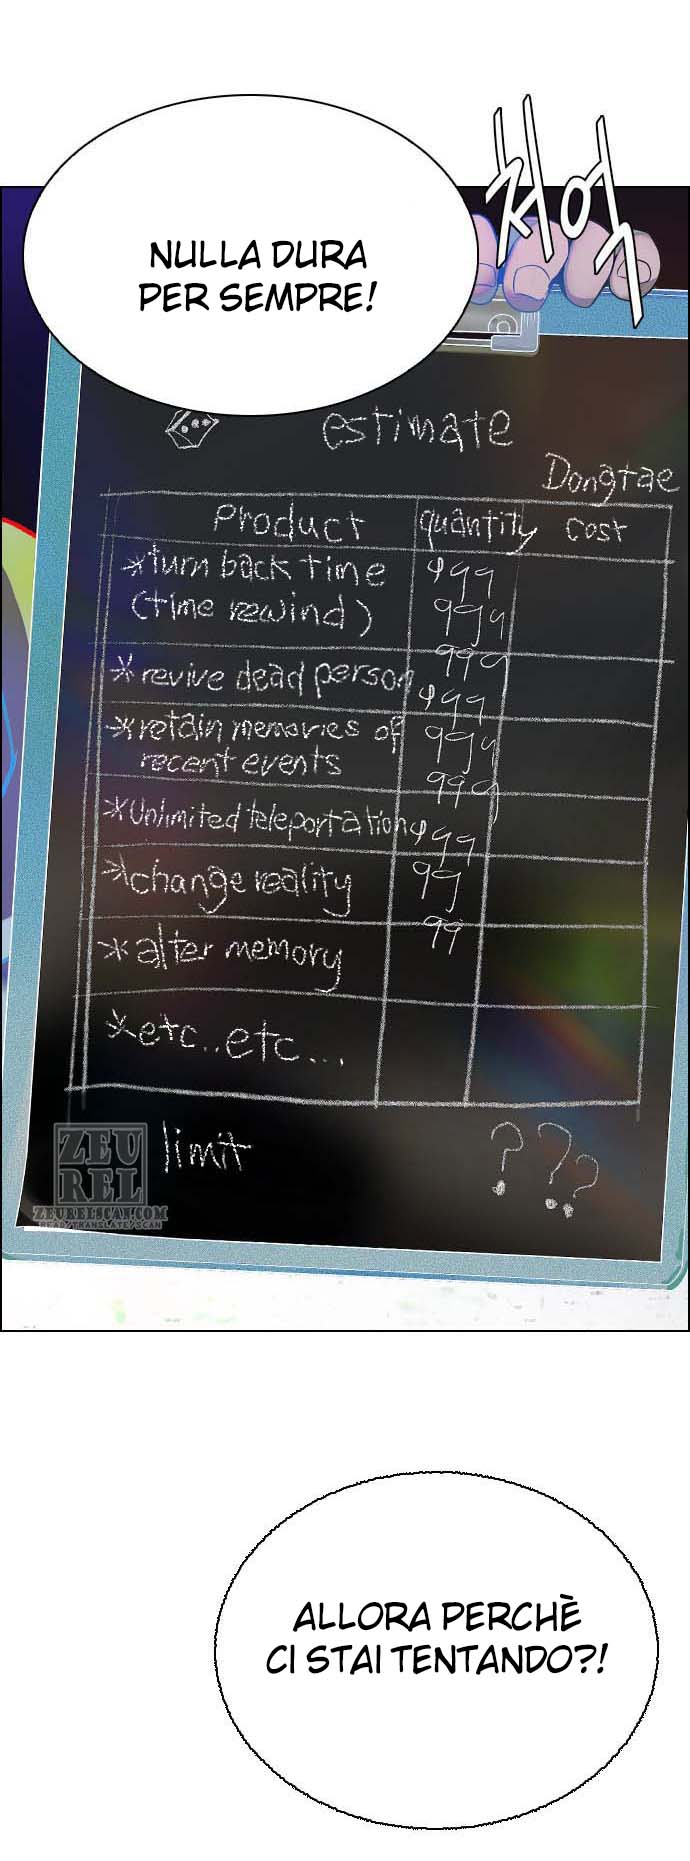 처억
NULLA DURA
PER SEMPRE!
estimate
Dongtae
Product quantity cost
*turn back time 999
(time rewind) 999
999
*revive dead person 999
*retain memories of 999
recent events 999
*Unlimited teleportation 999
*change reality 99
*alter memory 99
*etc..etc...
limit ???
ZEU
REL
ZEURELSCAN.COM
READ/TRANSLATE/SCAN
ALLORA PERCHÈ
CI STAI TENTANDO?!